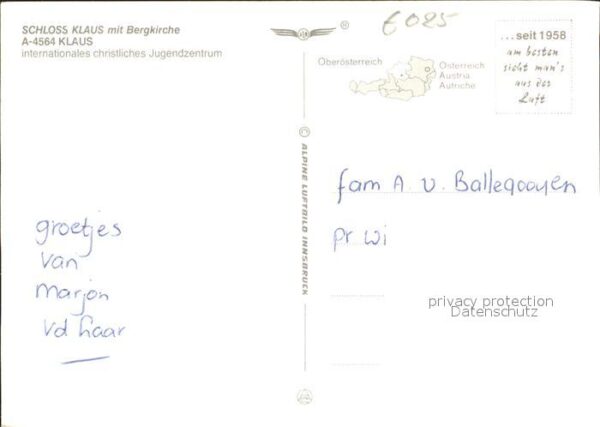 SCHLOSS KLAUS mit Bergkirche
A-4564 KLAUS
internationales christliches Jugendzentrum
®
€025
...seit 1958
am besten
sieht man's
aus der
Luft
Oberösterreich
Österreich
Austria
Autriche
ALPINE LUFTBILD INNSBRUCK
fam A. v. Ballegooyen
pr. wi
groetjes
van
Marjon
vd haar
privacy protection
Datenschutz